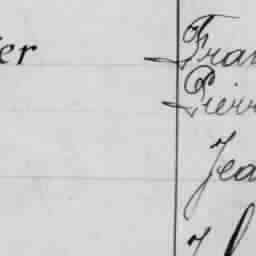 er Fran
Pierr
Jea